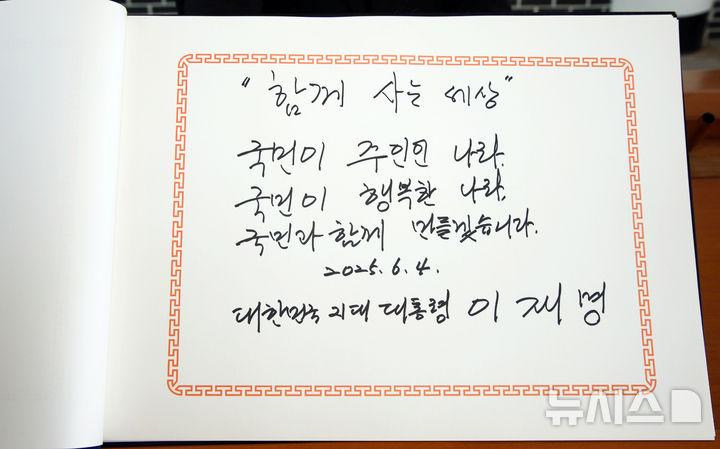 "함께 사는 세상"
국민이 주인인 나라,
국민이 행복한 나라,
국민과 함께 만들겠습니다.
2025. 6. 4.
대한민국 21대 대통령 이 재 명
뉴시스